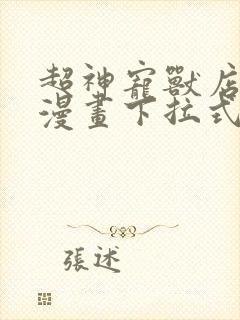 超神寵獸店
漫畫下拉式
張述